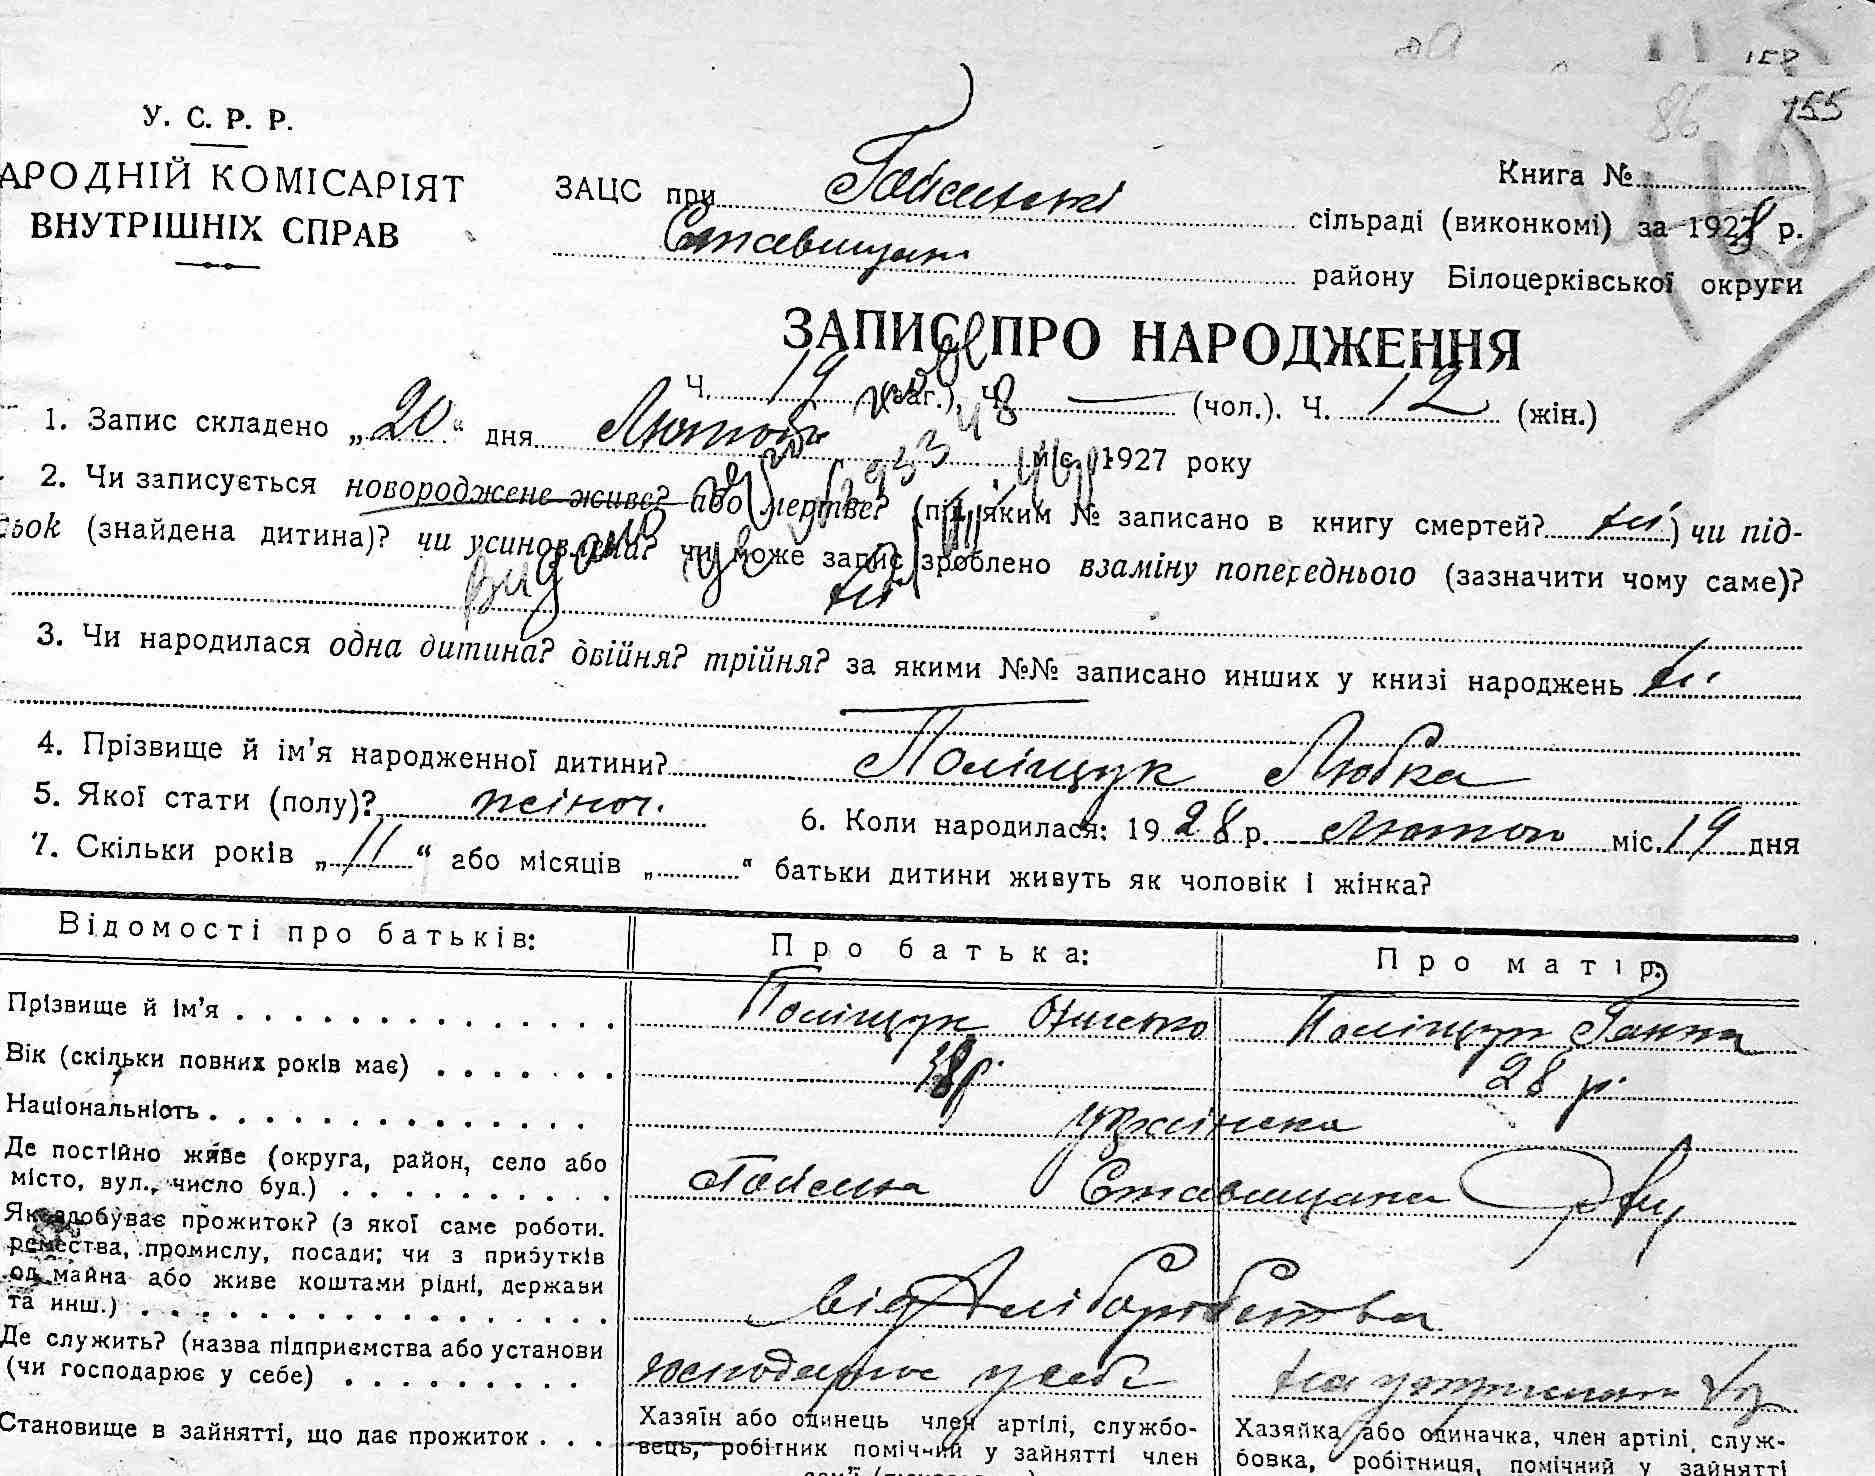 158
86 155
У. С. Р. Р.
АРОДНІЙ КОМІСАРІЯТ
ВНУТРІШНІХ СПРАВ
Книга №
ЗАЦС при Гайсинські сільраді (виконкомі) за 1928 р.
Ставищан району Білоцерківської округи
ЗАПИС ПРО НАРОДЖЕННЯ
Ч. 19 (заг.), Ч. — (чол.). Ч. 12 (жін.)
1. Запис складено „20“ дня Лютого міс. 1927 року
2. Чи записується новороджене живе? або мертве? (під яким № записано в книгу смертей? ні) чи під-
ьок (знайдена дитина)? чи усиновлена? чи може запис зроблено взаміну попереднього (зазначити чому саме)?
ні
видано
3. Чи народилася одна дитина? двійня? трійня? за якими №№ записано инших у книзі народжень ні
4. Прізвище й ім’я народженної дитини? Поліщук Любка
5. Якої стати (полу)? жіноч. 6. Коли народилася: 19 28 р. Лютого міс. 19 дня
7. Скільки років „11“ або місяців „ “ батьки дитини живуть як чоловік і жінка?
Відомості про батьків: Про батька: Про матір:
Прізвище й ім’я Поліщук Онисько Поліщук Ганна
Вік (скільки повних років має) 28 р.
Національність українска
Де постійно живе (округа, район, село або
місто, вул., число буд.) Ставищана
Як здобуває прожиток? (з якої саме роботи.
ремества, промислу, посади; чи з прибутків
од майна або живе коштами рідні, держави
та инш.) від хліборобства
Де служить? (назва підприємства або установи
(чи господарює у себе) господарює у себе на утриманні
Становище в зайнятті, що дає прожиток Хазяїн або одинець член артілі, службо- Хазяйка або одиначка, член артілі, служ-
вець, робітник помічний у зайнятті член бовка, робітниця, помічний у зайнятті